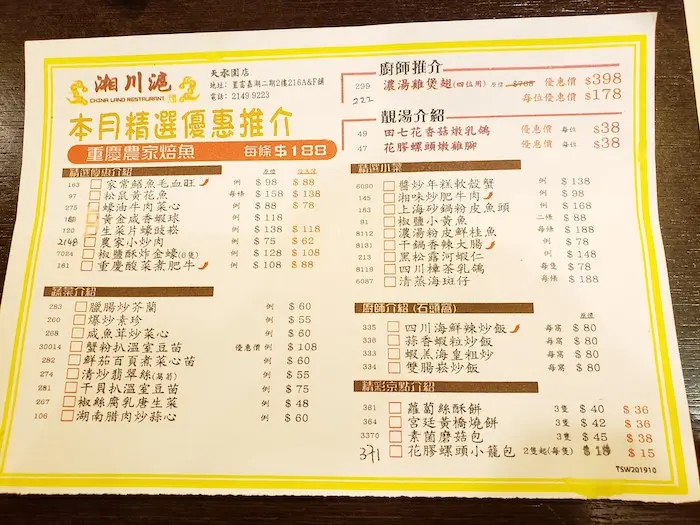 湘川滬
CHINA LAND RESTAURANT
天水圍店
地址: 置富嘉湖二期2樓216A&F舖
電話: 2149 9223
本月精選優惠推介
重慶農家焙魚 每條 $188
精選優惠介紹
163 家常鱔魚毛血旺 例 $98 $88
97 松鼠黃花魚 每條 $158 $138
275 蠔油牛肉菜心 例 $88 $78
黃金咸香蝦球 例 $118
120 生菜片蠔豉崧 例 $138 $118
2148 農家小炒肉 例 $75 $62
7024 椒鹽酥炸金蠔(6隻) 例 $128 $108
161 重慶酸菜煮肥牛 例 $108 $88
蔬菜介紹
283 臘腸炒芥蘭 例 $60
260 爆炒素珍 例 $55
268 咸魚茸炒菜心 例 $60
30014 蟹粉扒溫室豆苗 優惠價 例 $108
282 鮮茄百頁煮菜心苗 例 $60
274 清炒翡翠絲(萵筍) 例 $55
281 干貝扒溫室豆苗 例 $75
267 椒絲腐乳唐生菜 例 $48
106 湖南腊肉炒蒜心 例 $60
廚師推介
299 濃湯雞煲翅(四位用) 原價 $768 優惠價 $398
222 每位優惠價 $178
靚湯介紹
49 田七花香菇燉乳鴿 優惠價 每位 $38
47 花膠螺頭燉雞腳 優惠價 每位 $38
精選小菜
6090 醬炒年糕軟殼蟹 例 $138
145 湘味炒肥牛肉 例 $98
183 上海砂鍋粉皮魚頭 例 $168
91 椒鹽小黃魚 二條 $88
8112 濃湯粉皮鮮桂魚 每條 $188
8131 干鍋香辣大腸 例 $78
213 黑松露河蝦仁 例 $148
8119 四川樟茶乳鴿 每隻 $78
6087 清蒸海斑仔 每條 $188
廚師介紹 (石頭窩)
原價
335 四川海鮮辣炒飯 每窩 $80
336 蒜香蝦粒炒飯 每窩 $80
333 蝦羔海皇粗炒 每窩 $80
334 雙腸崧炒飯 每窩 $80
精彩京點介紹
361 蘿蔔絲酥餅 3隻 $40 $36
364 宮廷黃橋燒餅 3隻 $42 $36
3370 素菌磨菇包 3隻 $45 $38
371 花膠螺頭小籠包 2隻起(每隻) $18 $15
TSW201910